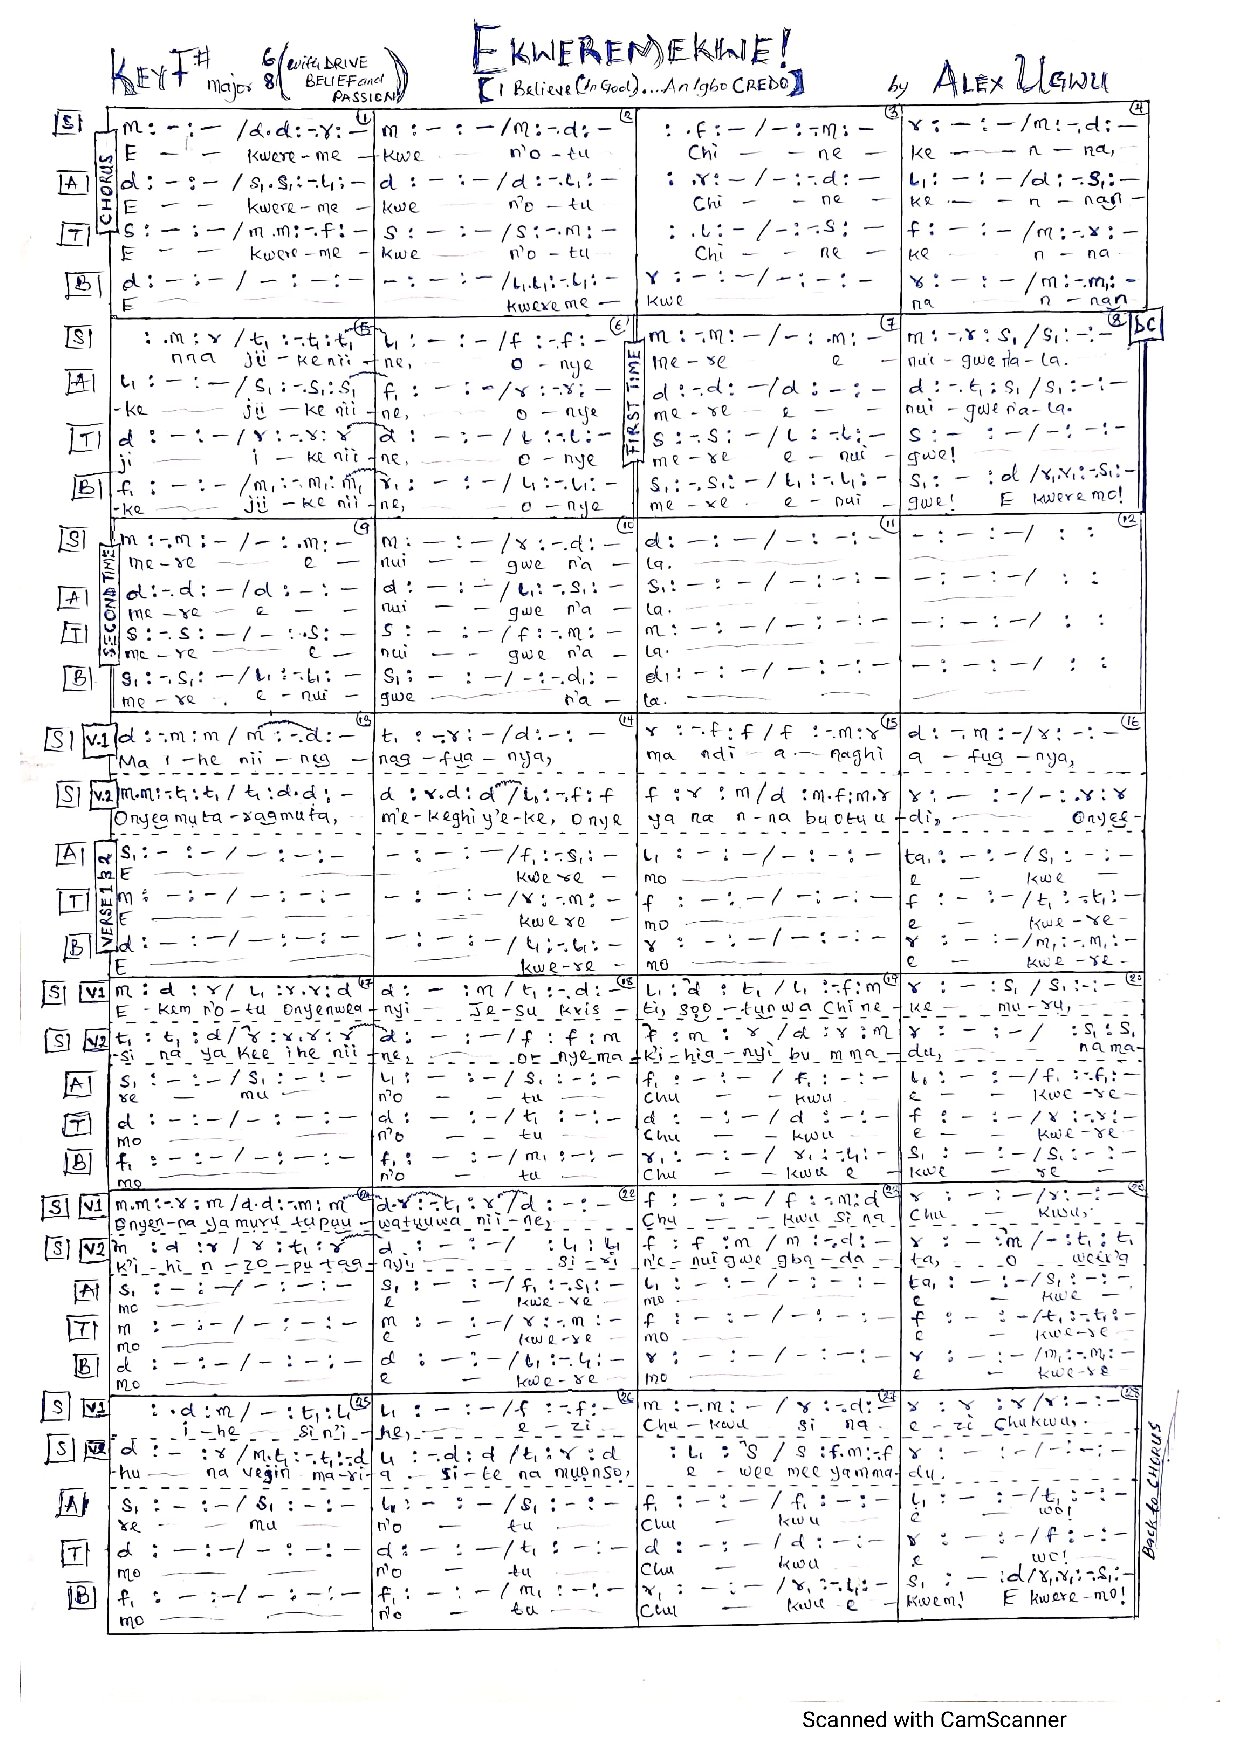 EKWEREMEKWE!
KEY F# major 6/8 (with DRIVE BELIEF and PASSION)
[I Believe (In God)... An Igbo CREDO]
by ALEX UGWU
CHORUS
[S] m : - : - / d.d : -.r : - | m : - : - / m : -.d : - | : .f : - / - : -.m : - | r : - : - / m : -.d : -
E - - kwere-me - kwe n'o - tu Chi - - ne - ke - - - n - na,
[A] d : - : - / s₁.s₁ : -.l₁ : - | d : - : - / d : -.l₁ : - | : .r : - / - : -.d : - | l₁ : - : - / d : -.s₁ : -
E - - kwere-me - kwe n'o - tu Chi - - ne - ke - - n - nan -
[T] s : - : - / m.m : -.f : - | s : - : - / s : -.m : - | : .l : - / - : -.s : - | f : - : - / m : -.r : -
E - - kwere-me - kwe n'o - tu Chi - - ne - ke n - na
[B] d : - : - / - : - : - | - : - : - / l₁.l₁ : -.l₁ : - | r : - : - / - : - : - | r : - : - / m : -.m₁ : -
E kwere me - kwe na n - nan
[S] : .m : r / t₁ : -.t₁ : t₁ | l₁ : - : - / f : -.f : - | m : -.m : - / - : .m : - | m : -.r : s₁ / s₁ : - : -
nna jii - ke nii - ne, o - nye me - re e - nui - gwe na - la.
[A] l₁ : - : - / s₁ : -.s₁ : s₁ | f₁ : - : - / r : -.r : - | d : -.d : - / d : - : - | d : -.t₁ : s₁ / s₁ : - : -
-ke jii - ke nii - ne, o - nye me - re e - - nui - gwe na - la.
FIRST TIME
DC
[T] d : - : - / r : -.r : r | d : - : - / l : -.l : - | s : -.s : - / l : -.l : - | s : - : - / - : - : -
ji i - ke nii - ne, o - nye me - re e - nui - gwe!
[B] f₁ : - : - / m₁ : -.m₁ : m₁ | r₁ : - : - / l₁ : -.l₁ : - | s₁ : -.s₁ : - / l₁ : -.l₁ : - | s₁ : - : d / r₁.r₁ : -.s₁ : -
-ke jii - ke nii - ne, o - nye me - re e - nui - gwe! E kwere mo!
SECOND TIME
[S] m : -.m : - / - : .m : - | m : - : - / r : -.d : - | d : - : - / - : - : - | - : - : - / : :
me - re e - nui - gwe n'a - la.
[A] d : -.d : - / d : - : - | d : - : - / l₁ : -.s₁ : - | s₁ : - : - / - : - : - | - : - : - / : :
me - re e - - nui - - gwe n'a - la.
[T] s : -.s : - / - : .s : - | s : - : - / f : -.m : - | m : - : - / - : - : - | - : - : - / : :
me - re e - nui - - gwe n'a - la.
[B] s₁ : -.s₁ : - / l₁ : -.l₁ : - | s₁ : - : - / - : -.d₁ : - | d₁ : - : - / - : - : - | - : - : - / : :
me - re e - nui - gwe n'a - la.
[S] V.1 d : -.m : m / m : -.d : - | t₁ : -.r : - / d : - : - | r : -.f : f / f : -.m : r | d : -.m : - / r : - : -
Ma i - he nii - neg - nag - fua - nya, ma ndi - a - naghi a - fug - nya,
[S] V.2 m.m : -.t₁ : t₁ / t₁ : d.d : - | d : r.d : d / l₁ : -.f : f | f : r : m / d : m.f : m.r | r : - : - / - : .r : r
Onyeamuta-ragmuta, m'e-keghi y'e-ke, Onye ya na n-na bu otu u-di, Onyee-
VERSE 1 & 2
[A] s₁ : - : - / - : - : - | - : - : - / f₁ : -.s₁ : - | l₁ : - : - / - : - : - | ta₁ : - : - / s₁ : - : -
E kwe re - mo e - kwe -
[T] m : - : - / - : - : - | - : - : - / r : -.m : - | f : - : - / - : - : - | f : - : - / t₁ : -.t₁ : -
E kwe re - mo e - kwe - re -
[B] d : - : - / - : - : - | - : - : - / l₁ : -.l₁ : - | r : - : - / - : - : - | r : - : - / m₁ : -.m₁ : -
E kwe-re - mo e - kwe - re -
[S] V1 m : d : r / l₁ : r.r : d | d : - : m / t₁ : -.d : - | l₁ : d : t₁ / l₁ : -.f : m | r : - : s₁ / s₁ : - : -
E - kem n'o-tu Onyenwea-nyi - Je-su Kris - ti, soo-tunwa Chine-ke mu-ru,
[S] V2 t₁ : t₁ : d / r : r.r : r | d : - : - / f : f : m | f : m : r / d : r : m | r : - : - / : s₁ : s₁
-si na ya kee ihe nii - ne, or nyema ki-hia-nyi bu mma-du, nama-
[A] s₁ : - : - / s₁ : - : - | l₁ : - : - / s₁ : - : - | f₁ : - : - / f₁ : - : - | l₁ : - : - / f₁ : -.f₁ : -
re - mu - n'o - - tu - Chu - - kwu e - kwe-re -
[T] d : - : - / - : - : - | d : - : - / t₁ : - : - | d : - : - / d : - : - | f : - : - / r : -.r : -
mo n'o - - tu Chu - - kwu e - kwe-re -
[B] f₁ : - : - / - : - : - | f₁ : - : - / m₁ : - : - | r₁ : - : - / r₁ : -.l₁ : - | s₁ : - : - / s₁ : - : -
mo n'o - tu - Chu - kwu e - kwe - re -
[S] V1 m.m : -.r : m / d.d : -.m : m | d.r : -.t₁ : r / d : - : - | f : - : - / f : -.m : d | r : - : - / r : - : -
Onyen-na ya muru tupuu-watuuwa nii-ne, Chu - - kwu si na Chu - kwu,
[S] V2 m : d : r / r : t₁ : r | d : - : - / : l₁ : l₁ | f : f : m / m : -.d : - | r : - : m / - : t₁ : t₁
k'i-hi n-zo-pu-taa-nyi si-ri n'e-nuigwe gba-da - ta, o
[A] s₁ : - : - / - : - : - | s₁ : - : - / f₁ : -.s₁ : - | l₁ : - : - / - : - : - | ta₁ : - : - / s₁ : - : -
mo e - kwe-re - mo e - kwe -
[T] m : - : - / - : - : - | m : - : - / r : -.m : - | f : - : - / - : - : - | f : - : - / t₁ : -.t₁ : -
mo e - kwe-re - mo e - kwe-re -
[B] d : - : - / - : - : - | d : - : - / l₁ : -.l₁ : - | r : - : - / - : - : - | r : - : - / m₁ : -.m₁ : -
mo e - kwe-re - mo e - kwe-re
[S] V1 : .d : m / - : t₁ : l₁ | l₁ : - : - / f : -.f : - | m : -.m : - / r : -.d : - | r : r : r / r : - : -
i-he si n'i-he, e - zi - Chu-kwu si na e-zi Chukwu.
[S] V2 d : - : r / m.t₁ : -.t₁ : -.d | l₁ : -.d : d / t₁ : r : d | : l₁ : s / s : f.m : -.f | r : - : - / - : - : -
-hu na vegin ma-ri-a. si-te na muonso, e - wee mee yamma-du.
[A] s₁ : - : - / s₁ : - : - | l₁ : - : - / s₁ : - : - | f₁ : - : - / f₁ : - : - | l₁ : - : - / t₁ : - : -
re - - mu - n'o - tu Chu - kwu e - wo!
[T] d : - : - / - : - : - | d : - : - / t₁ : - : - | d : - : - / d : - : - | r : - : - / f : - : -
mo n'o - tu Chu - kwu e - wo!
[B] f₁ : - : - / - : - : - | f₁ : - : - / m₁ : - : - | r₁ : - : - / r₁ : -.l₁ : - | s₁ : - : d / r₁.r₁ : -.s₁ : -
mo n'o - tu Chu - kwu e - kwem! E kwere-mo!
Back to CHORUS
Scanned with CamScanner